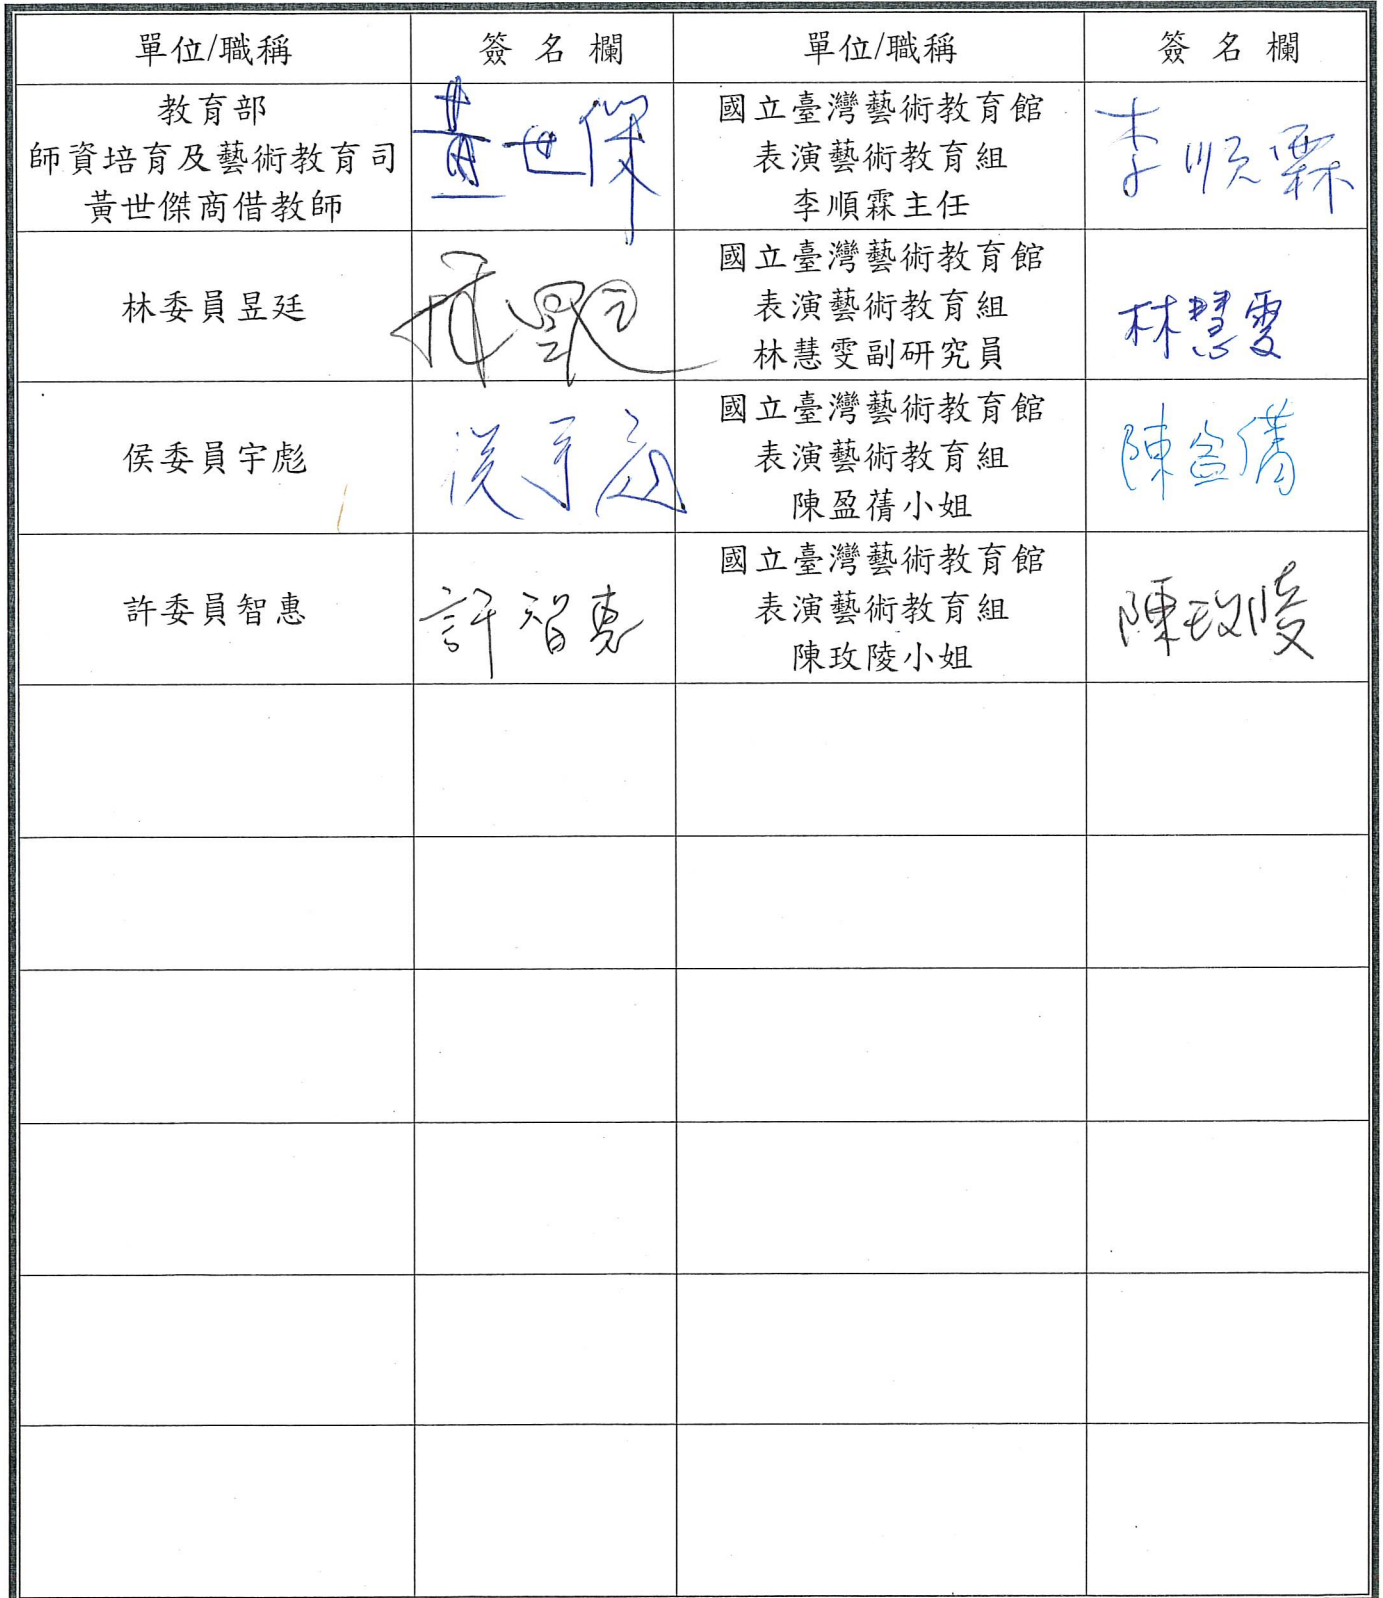 單位/職稱 簽名欄 單位/職稱 簽名欄
教育部
師資培育及藝術教育司
黃世傑商借教師
黃世傑
國立臺灣藝術教育館
表演藝術教育組
李順霖主任
李順霖
林委員昱廷
林昱廷
國立臺灣藝術教育館
表演藝術教育組
林慧雯副研究員
林慧雯
侯委員宇彪
侯宇彪
國立臺灣藝術教育館
表演藝術教育組
陳盈蒨小姐
陳盈蒨
許委員智惠
許智惠
國立臺灣藝術教育館
表演藝術教育組
陳玫陵小姐
陳玫陵